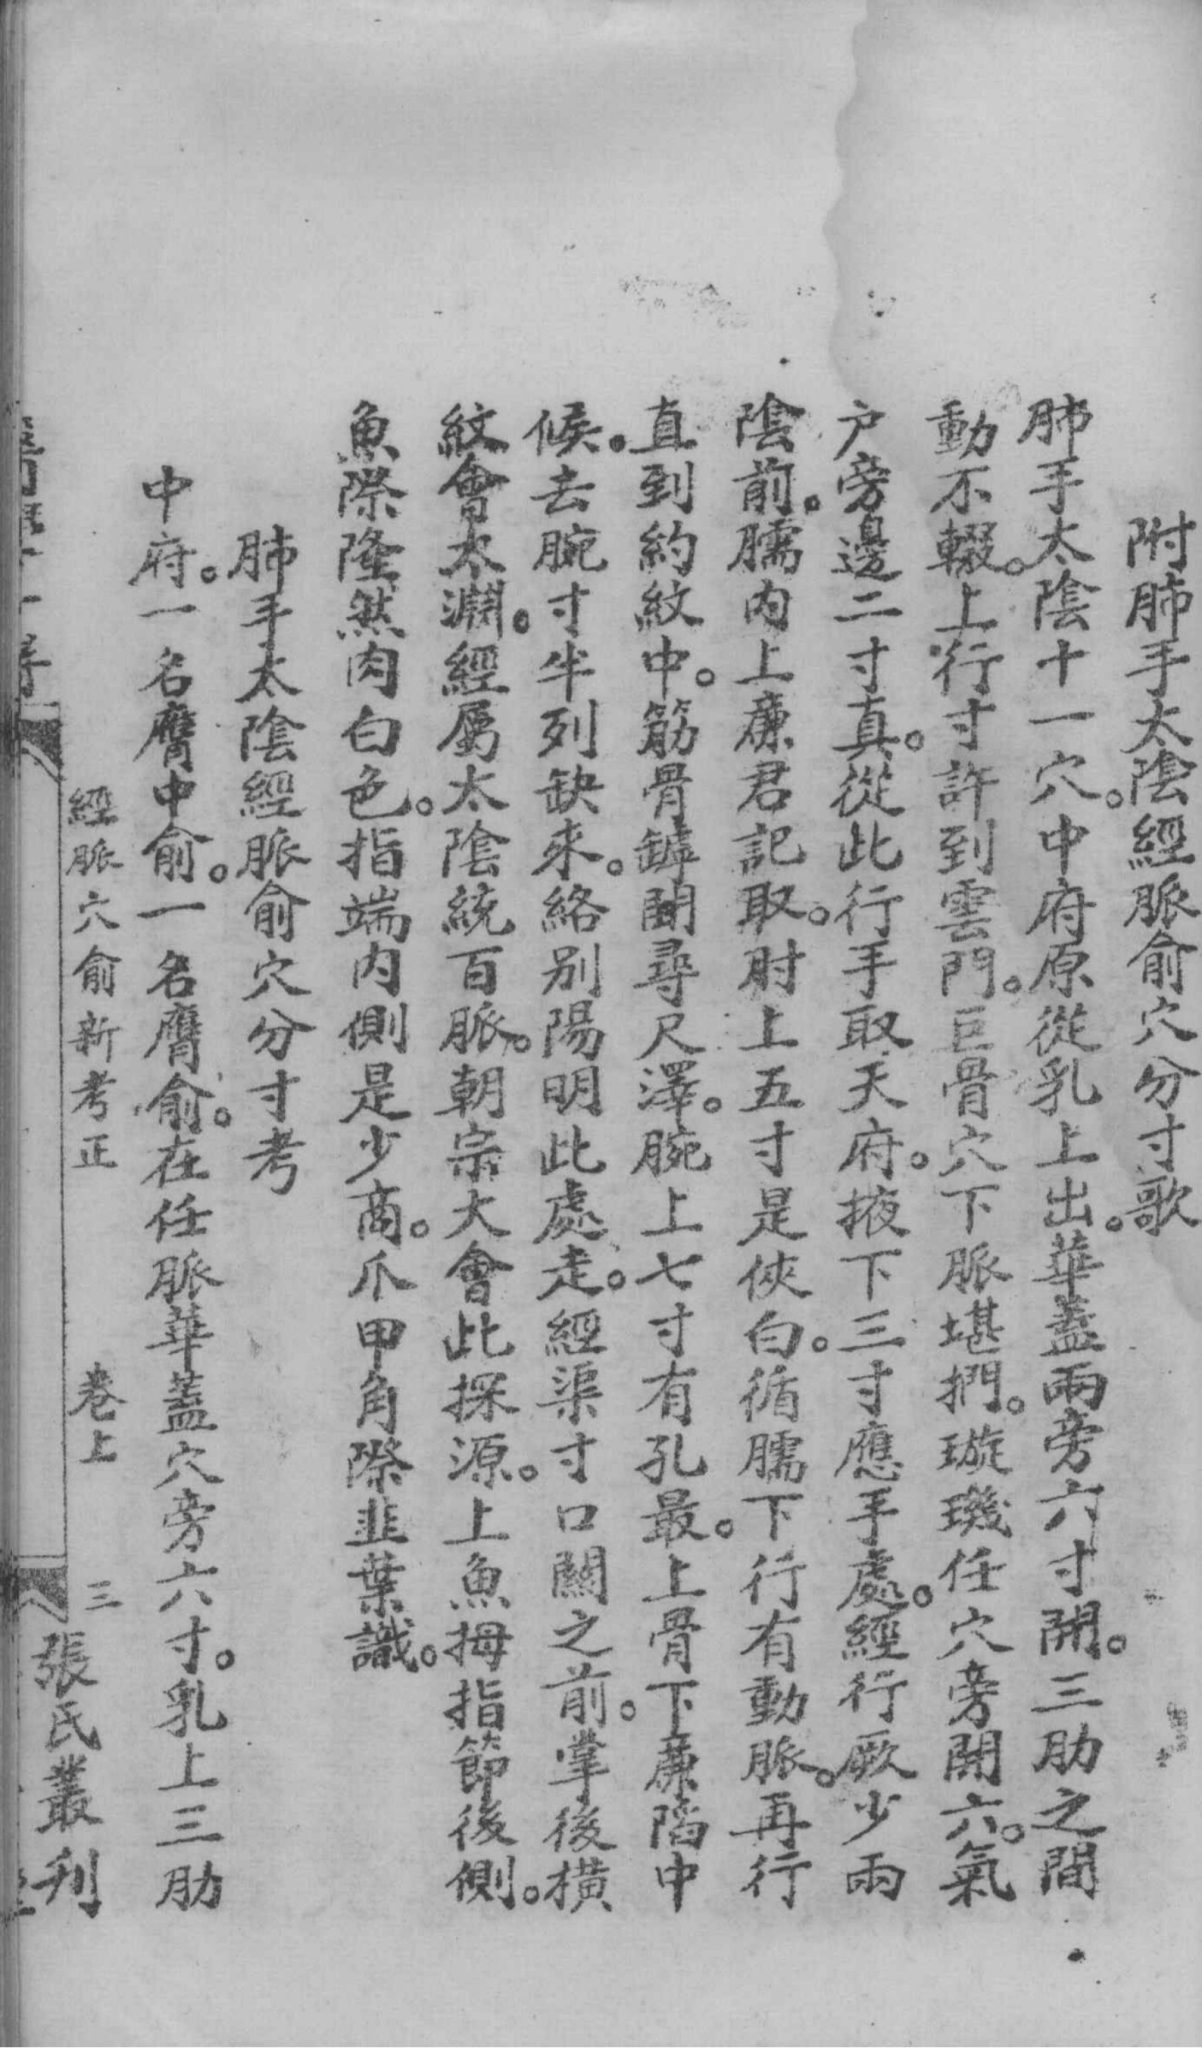 附肺手太陰經脈俞穴分寸歌
肺手太陰十一穴。中府原從乳上出。華蓋兩旁六寸開。三肋之間
動不輟。上行寸許到雲門。巨骨穴下脈堪捫。璇璣任穴旁開六。氣
户旁邊二寸真。從此行手取天府。掖下三寸應手處。經行厥少兩
陰前。臑内上廉君記取。肘上五寸是俠白。循臑下行有動脈。再行
直到約紋中。筋骨罅間尋尺澤。腕上七寸有孔最。上骨下廉陷中
候。去腕寸半列缺來。絡别陽明此處走。經渠寸口關之前。掌後橫
紋會太淵。經屬太陰統百脈。朝宗大會此探源。上魚拇指節後側。
魚際隆然肉白色。指端内側是少商。爪甲角際韭葉識。
肺手太陰經脈俞穴分寸考
中府。一名膺中俞。一名膺俞。在任脈華蓋穴旁六寸。乳上三肋
經脈穴俞新考正
卷上
三
張氏叢刊